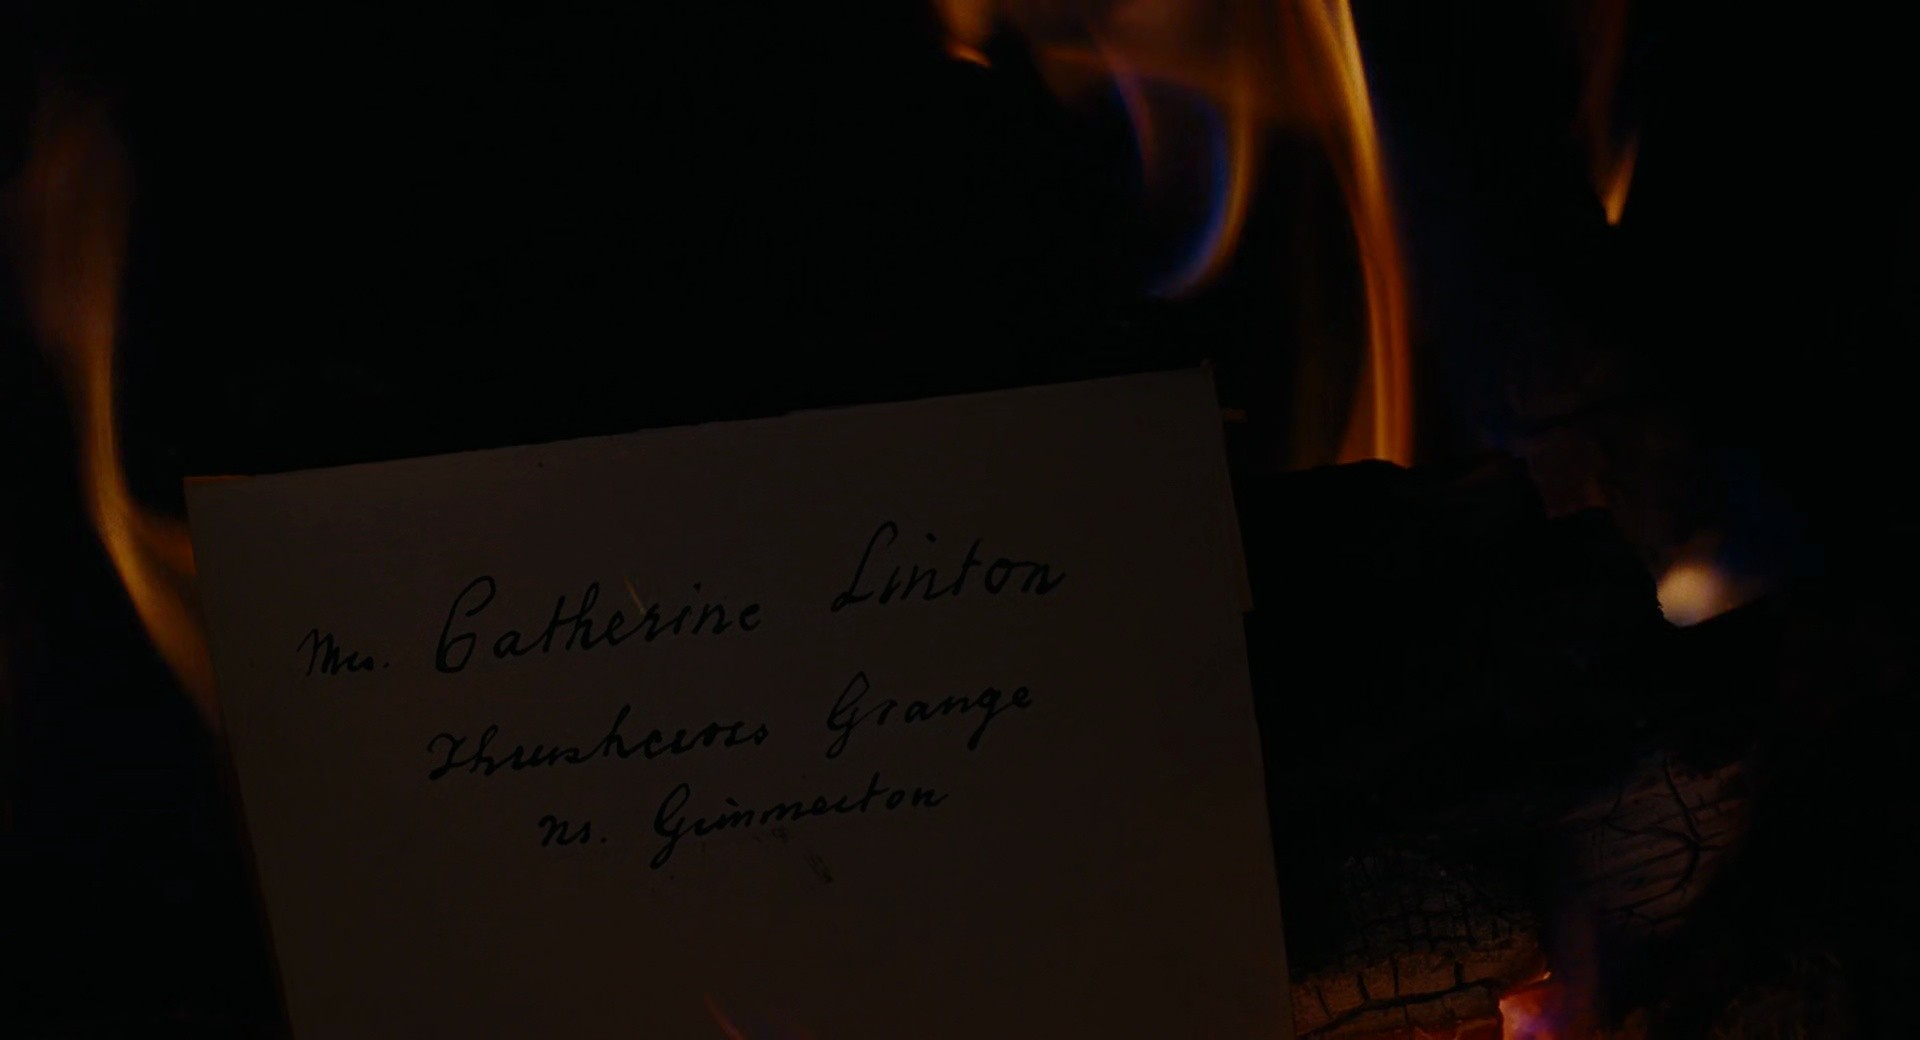 Mrs. Catherine Linton
Thrushcross Grange
nr. Gimmerton